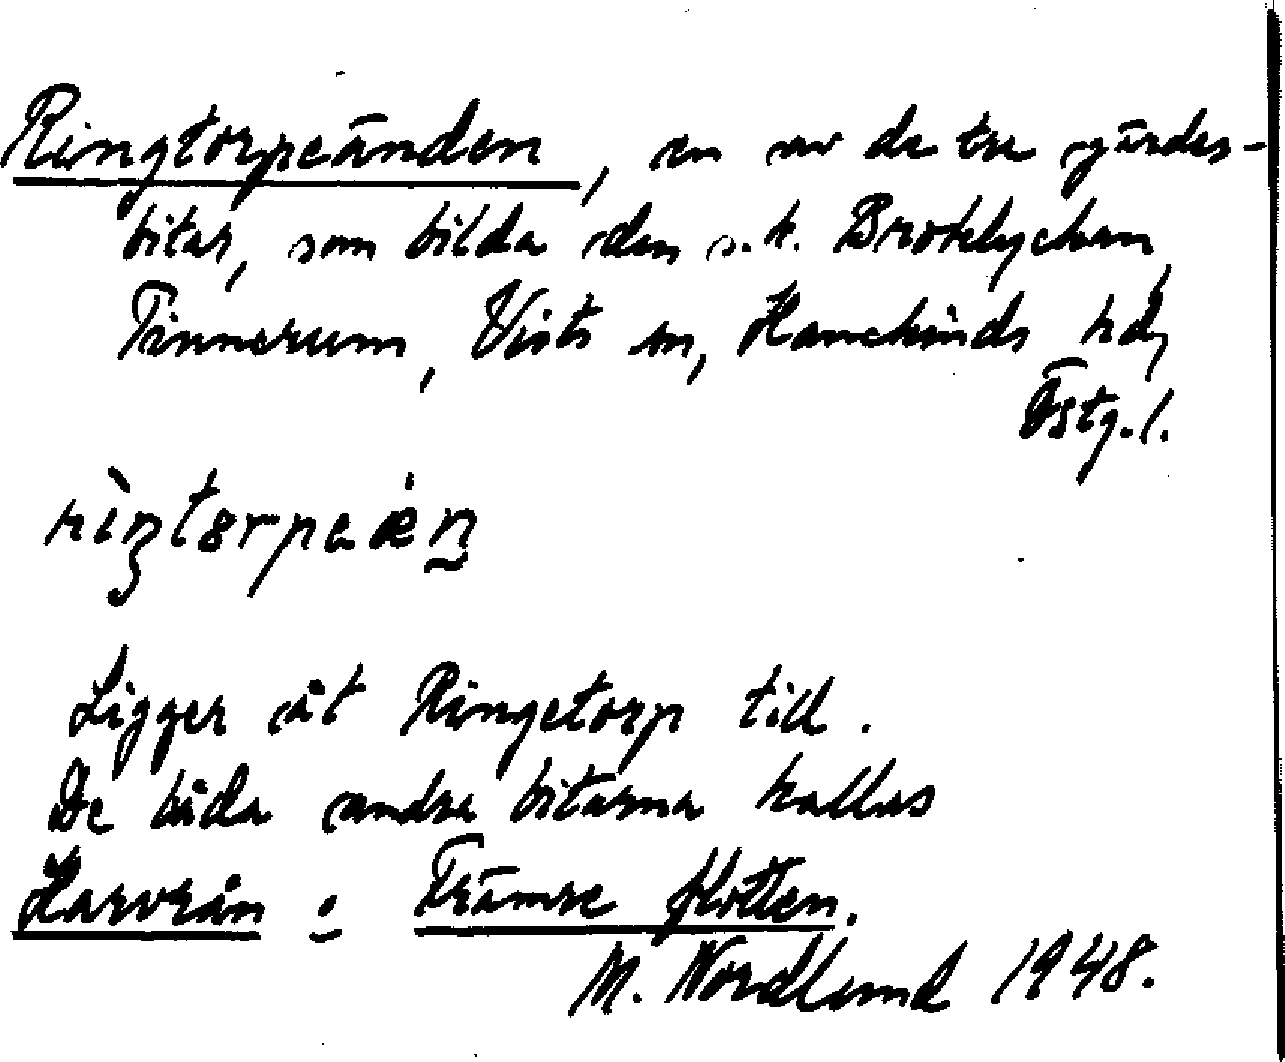 Ringtorpeänden, en av de tre gärdes-
bitar, som bilda den s.k. Broklyckan,
Tinnerum, Vists sn, Hanekinds hd,
Östg.l.
Ligger åt Ringetorp till.
De båda andra bitarna kallas
Harvrån o Främre flotten.
M. Nordlund 1948.